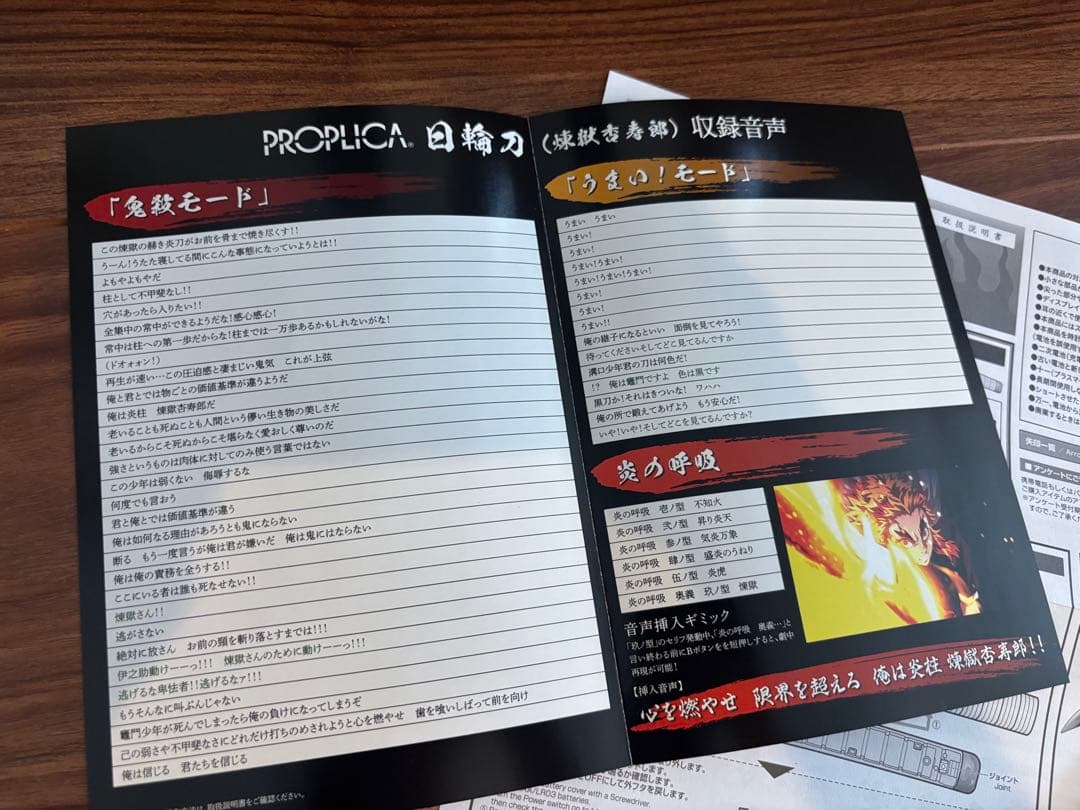 PROPLICA® 日輪刀 (煉獄杏寿郎) 収録音声
「鬼殺モード」
この煉獄の赫き炎刀がお前を骨まで焼き尽くす!!
うーん!うたた寝してる間にこんな事態になっていようとは!!
よもやよもやだ
柱として不甲斐なし!!
穴があったら入りたい!!
全集中の常中ができるようだな!感心感心!
常中は柱への第一歩だからな!柱までは一万歩あるかもしれないがな!
(ドオォォン!)
再生が速い…この圧迫感と凄まじい鬼気 これが上弦
俺と君とでは物ごとの価値基準が違うようだ
俺は炎柱 煉獄杏寿郎だ
老いることも死ぬことも人間という儚い生き物の美しさだ
老いるからこそ死ぬからこそ堪らなく愛おしく尊いのだ
強さというものは肉体に対してのみ使う言葉ではない
この少年は弱くない 侮辱するな
何度でも言おう
君と俺とでは価値基準が違う
俺は如何なる理由があろうとも鬼にならない
断る もう一度言うが俺は君が嫌いだ 俺は鬼にはならない
俺は俺の責務を全うする!!
ここにいる者は誰も死なせない!!
煉獄さん!!
逃がさない
絶対に放さん お前の頸を斬り落とすまでは!!!
伊之助動けーーっ!!! 煉獄さんのために動けーーっ!!!
逃げるな卑怯者!!逃げるなァ!!!
もうそんなに叫ぶんじゃない
竈門少年が死んでしまったら俺の負けになってしまうぞ
己の弱さや不甲斐なさにどれだけ打ちのめされようと心を燃やせ 歯を喰いしばって前を向け
俺は信じる 君たちを信じる
取扱説明書をご確認ください。
「うまい!モード」
うまい うまい
うまい!
うまい!
うまい!うまい!
うまい!うまい!うまい!
うまい!
うまい!
うまい!!
俺の継子になるといい 面倒を見てやろう!
待ってくださいそしてどこ見てるんですか
溝口少年君の刀は何色だ!
!? 俺は竈門ですよ 色は黒です
黒刀か!それはきついな! ワハハ
俺の所で鍛えてあげよう もう安心だ!
いや!いや!そしてどこを見てるんですか?
炎の呼吸
炎の呼吸 壱ノ型 不知火
炎の呼吸 弐ノ型 昇り炎天
炎の呼吸 参ノ型 気炎万象
炎の呼吸 肆ノ型 盛炎のうねり
炎の呼吸 伍ノ型 炎虎
炎の呼吸 奥義 玖ノ型 煉獄
音声挿入ギミック
「玖ノ型」のセリフ発動中、「炎の呼吸 奥義…」と
言い終わる前にBボタンをを短押しすると、劇中
再現が可能!
【挿入音声】
心を燃やせ 限界を超えろ 俺は炎柱 煉獄杏寿郎!!
取扱説明書
●本商品の対
●小さな部品
●尖った部分
●ディスプレイ
●耳の近くで使
●本商品にはス
●本商品を時計
(電池を誤使用
●二次電池(充電
●古い電池と新
●十一(プラスマ
●長期間使用し
●ショートさせた
●万一、電池から
●廃棄するときは
矢印一覧 / Arro
■アンケートにご
携帯電話もしくはパ
ご購入アイテムのア
※アンケート受付期
すので、ご了承く
①
ジョイント
Joint
り外します。
鳴るか確認します。
OFFにして外フタを戻します。
ttery cover with a Screwdriver.
/LR03 batteries.
the Power switch on to
then check the